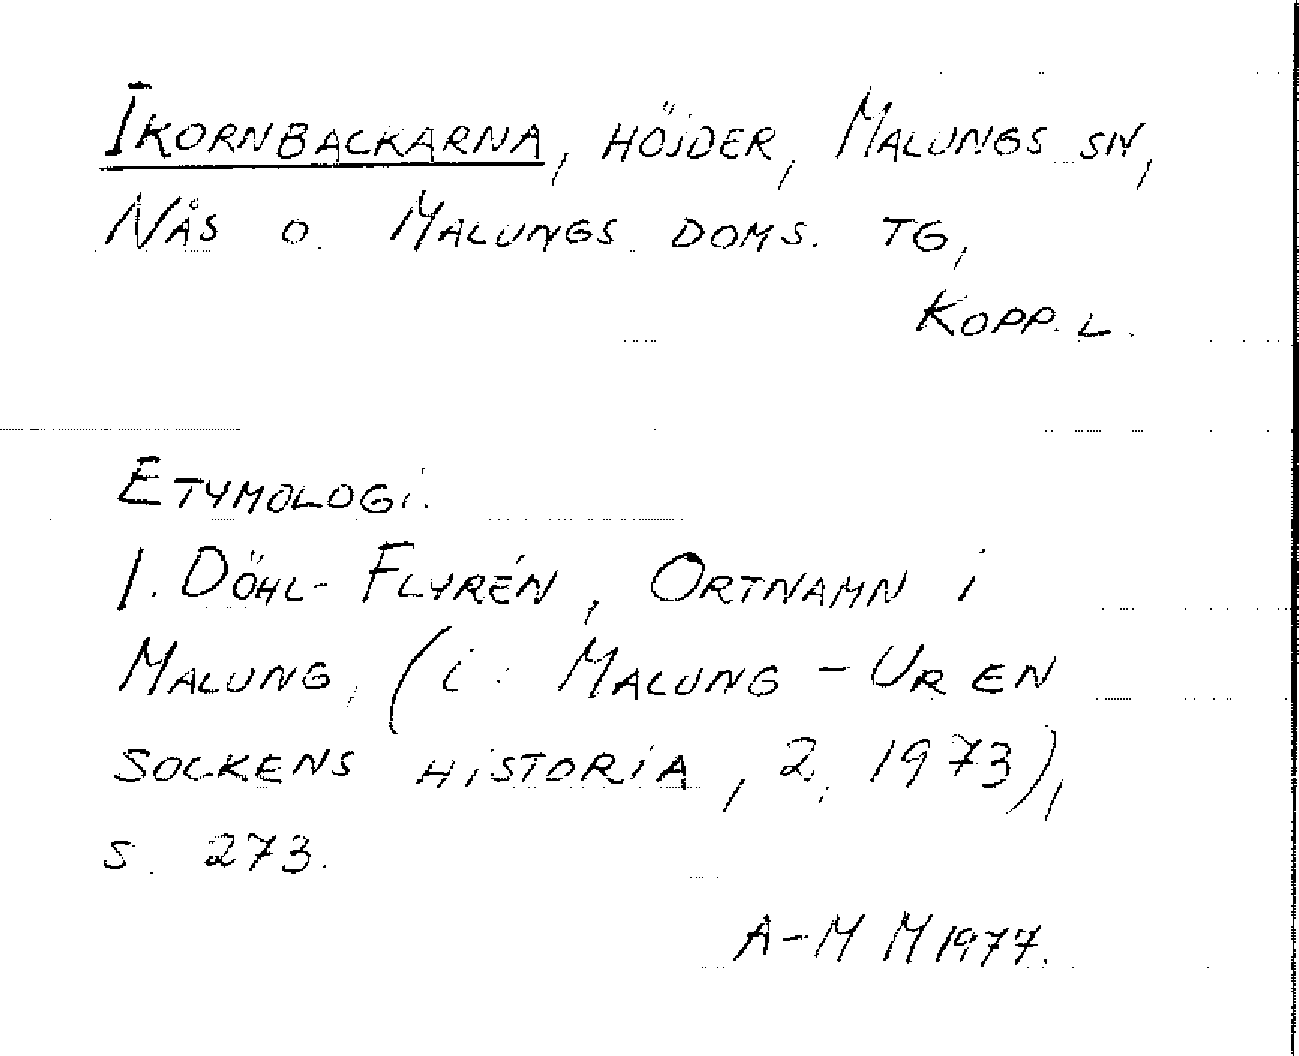 IKORNBACKARNA, HÖJDER, MALUNGS SN,
NÅS O. MALUNGS DOMS. TG,
KOPP. L.
ETYMOLOGI.
I. DÖHL-FLYRÉN, ORTNAMN I
MALUNG, (I: MALUNG - UR EN
SOCKENS HISTORIA, 2, 1973),
S. 273.
A-M M 1977.